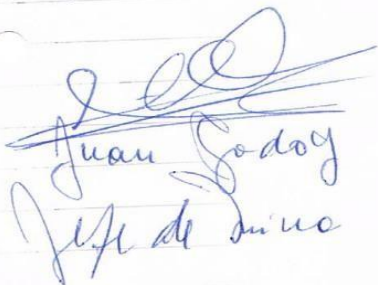 Juan Godoy
Jefe de mina